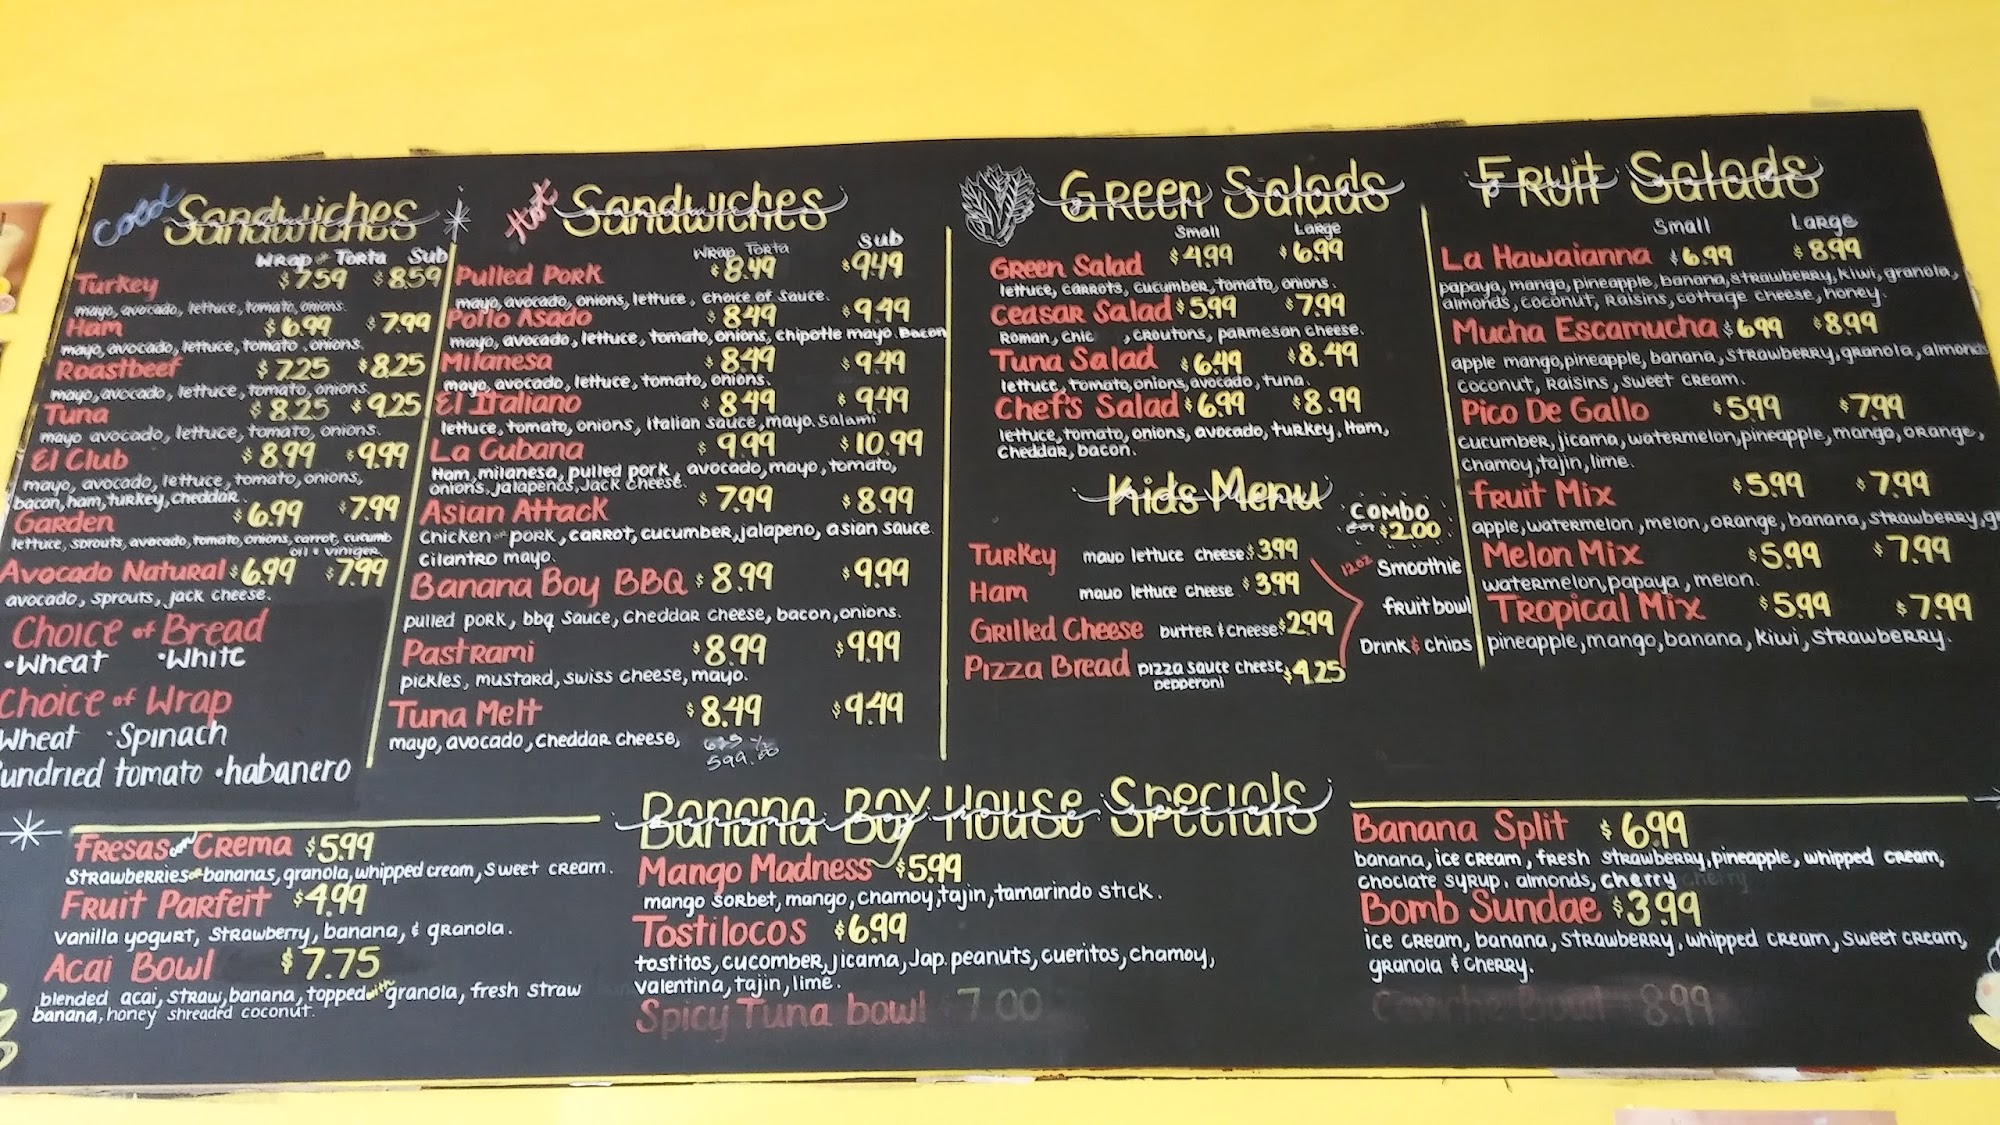 Cold Sandwiches
Wrap or Torta Sub
Turkey $7.59 $8.59
mayo, avocado, lettuce, tomato, onions.
Ham $6.99 $7.99
mayo, avocado, lettuce, tomato, onions.
Roastbeef $7.25 $8.25
mayo, avocado, lettuce, tomato, onions.
Tuna $8.25 $9.25
mayo avocado, lettuce, tomato, onions.
El Club $8.99 $9.99
mayo, avocado, lettuce, tomato, onions,
bacon, ham, turkey, cheddar.
Garden $6.99 $7.99
lettuce, sprouts, avocado, tomato, onions, carrot, cucumb
oil & viniger
Avocado Natural $6.99 $7.99
avocado, sprouts, jack cheese.
Choice of Bread
•Wheat •White
Choice of Wrap
Wheat •Spinach
sundried tomato •habanero
Hot Sandwiches
Wrap Torta Sub
Pulled Pork $8.49 $9.49
mayo, avocado, onions, lettuce, choice of sauce.
Pollo Asado $8.49 $9.49
mayo, avocado, lettuce, tomato, onions, chipotle mayo. Bacon
Milanesa $8.49 $9.49
mayo, avocado, lettuce, tomato, onions.
El Italiano $8.49 $9.49
lettuce, tomato, onions, italian sauce, mayo. salami
La Cubana $9.99 $10.99
Ham, milanesa, pulled pork, avocado, mayo, tomato,
onions, jalapenos, Jack cheese.
Asian Attack $7.99 $8.99
chicken or pork, carrot, cucumber, jalapeno, asian sauce
cilantro mayo.
Banana Boy BBQ $8.99 $9.99
pulled pork, bbq sauce, cheddar cheese, bacon, onions.
Pastrami $8.99 $9.99
pickles, mustard, swiss cheese, mayo.
Tuna Melt $8.49 $9.49
mayo, avocado, cheddar cheese,
Green Salads
Small Large
Green Salad $4.99 $6.99
lettuce, carrots, cucumber, tomato, onions.
Ceasar Salad $5.99 $7.99
Roman, chic , croutons, parmesan cheese.
Tuna Salad $6.49 $8.49
lettuce, tomato, onions, avocado, tuna.
Chef's Salad $6.99 $8.99
lettuce, tomato, onions, avocado, turkey, Ham,
Cheddar, bacon.
Kids Menu
Turkey mayo lettuce cheese $3.99
Ham mayo lettuce cheese $3.99
Grilled Cheese butter & cheese $2.99
Pizza Bread pizza sauce cheese, $4.25
pepperoni
COMBO
$2.00
12oz Smoothie
fruit bowl
Drink & chips
Fruit Salads
Small Large
La Hawaianna $6.99 $8.99
papaya, mango, pineapple, banana, strawberry, kiwi, granola,
almonds, coconut, raisins, cottage cheese, honey.
Mucha Escamucha $6.99 $8.99
apple mango, pineapple, banana, strawberry, granola, almonds
coconut, raisins, sweet cream.
Pico De Gallo $5.99 $7.99
cucumber, jicama, watermelon, pineapple, mango, orange,
chamoy, tajin, lime.
fruit Mix $5.99 $7.99
apple, watermelon, melon, orange, banana, strawberry, g
Melon Mix $5.99 $7.99
watermelon, papaya, melon.
Tropical Mix $5.99 $7.99
pineapple, mango, banana, kiwi, strawberry.
Banana Boy House Specials
Fresas con Crema $5.99
strawberries or bananas, granola, whipped cream, sweet cream.
Fruit Parfeit $4.99
vanilla yogurt, strawberry, banana, & granola.
Acai Bowl $7.75
blended acai, straw, banana, topped with granola, fresh straw
banana, honey shreaded coconut.
Mango Madness $5.99
mango sorbet, mango, chamoy, tajin, tamarindo stick.
Tostilocos $6.99
tostitos, cucomber, jicama, Jap. peanuts, cueritos, chamoy,
valentina, tajin, lime.
Spicy Tuna bowl $7.00
Banana Split $6.99
banana, ice cream, fresh strawberry, pineapple, whipped cream,
choclate syrup, almonds, cherry cherry
Bomb Sundae $3.99
ice cream, banana, strawberry, whipped cream, sweet cream,
granola & cherry.
Bowl 8.99